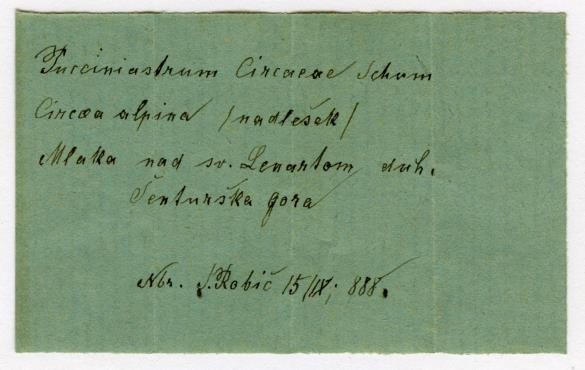 Pucciniastrum Circaeae Schum
Circæa alpina /nadlešek/
Mlaka nad sv. Lenartom duh.
Šenturška gora
Nbr. S. Robič 15/IX; 888.